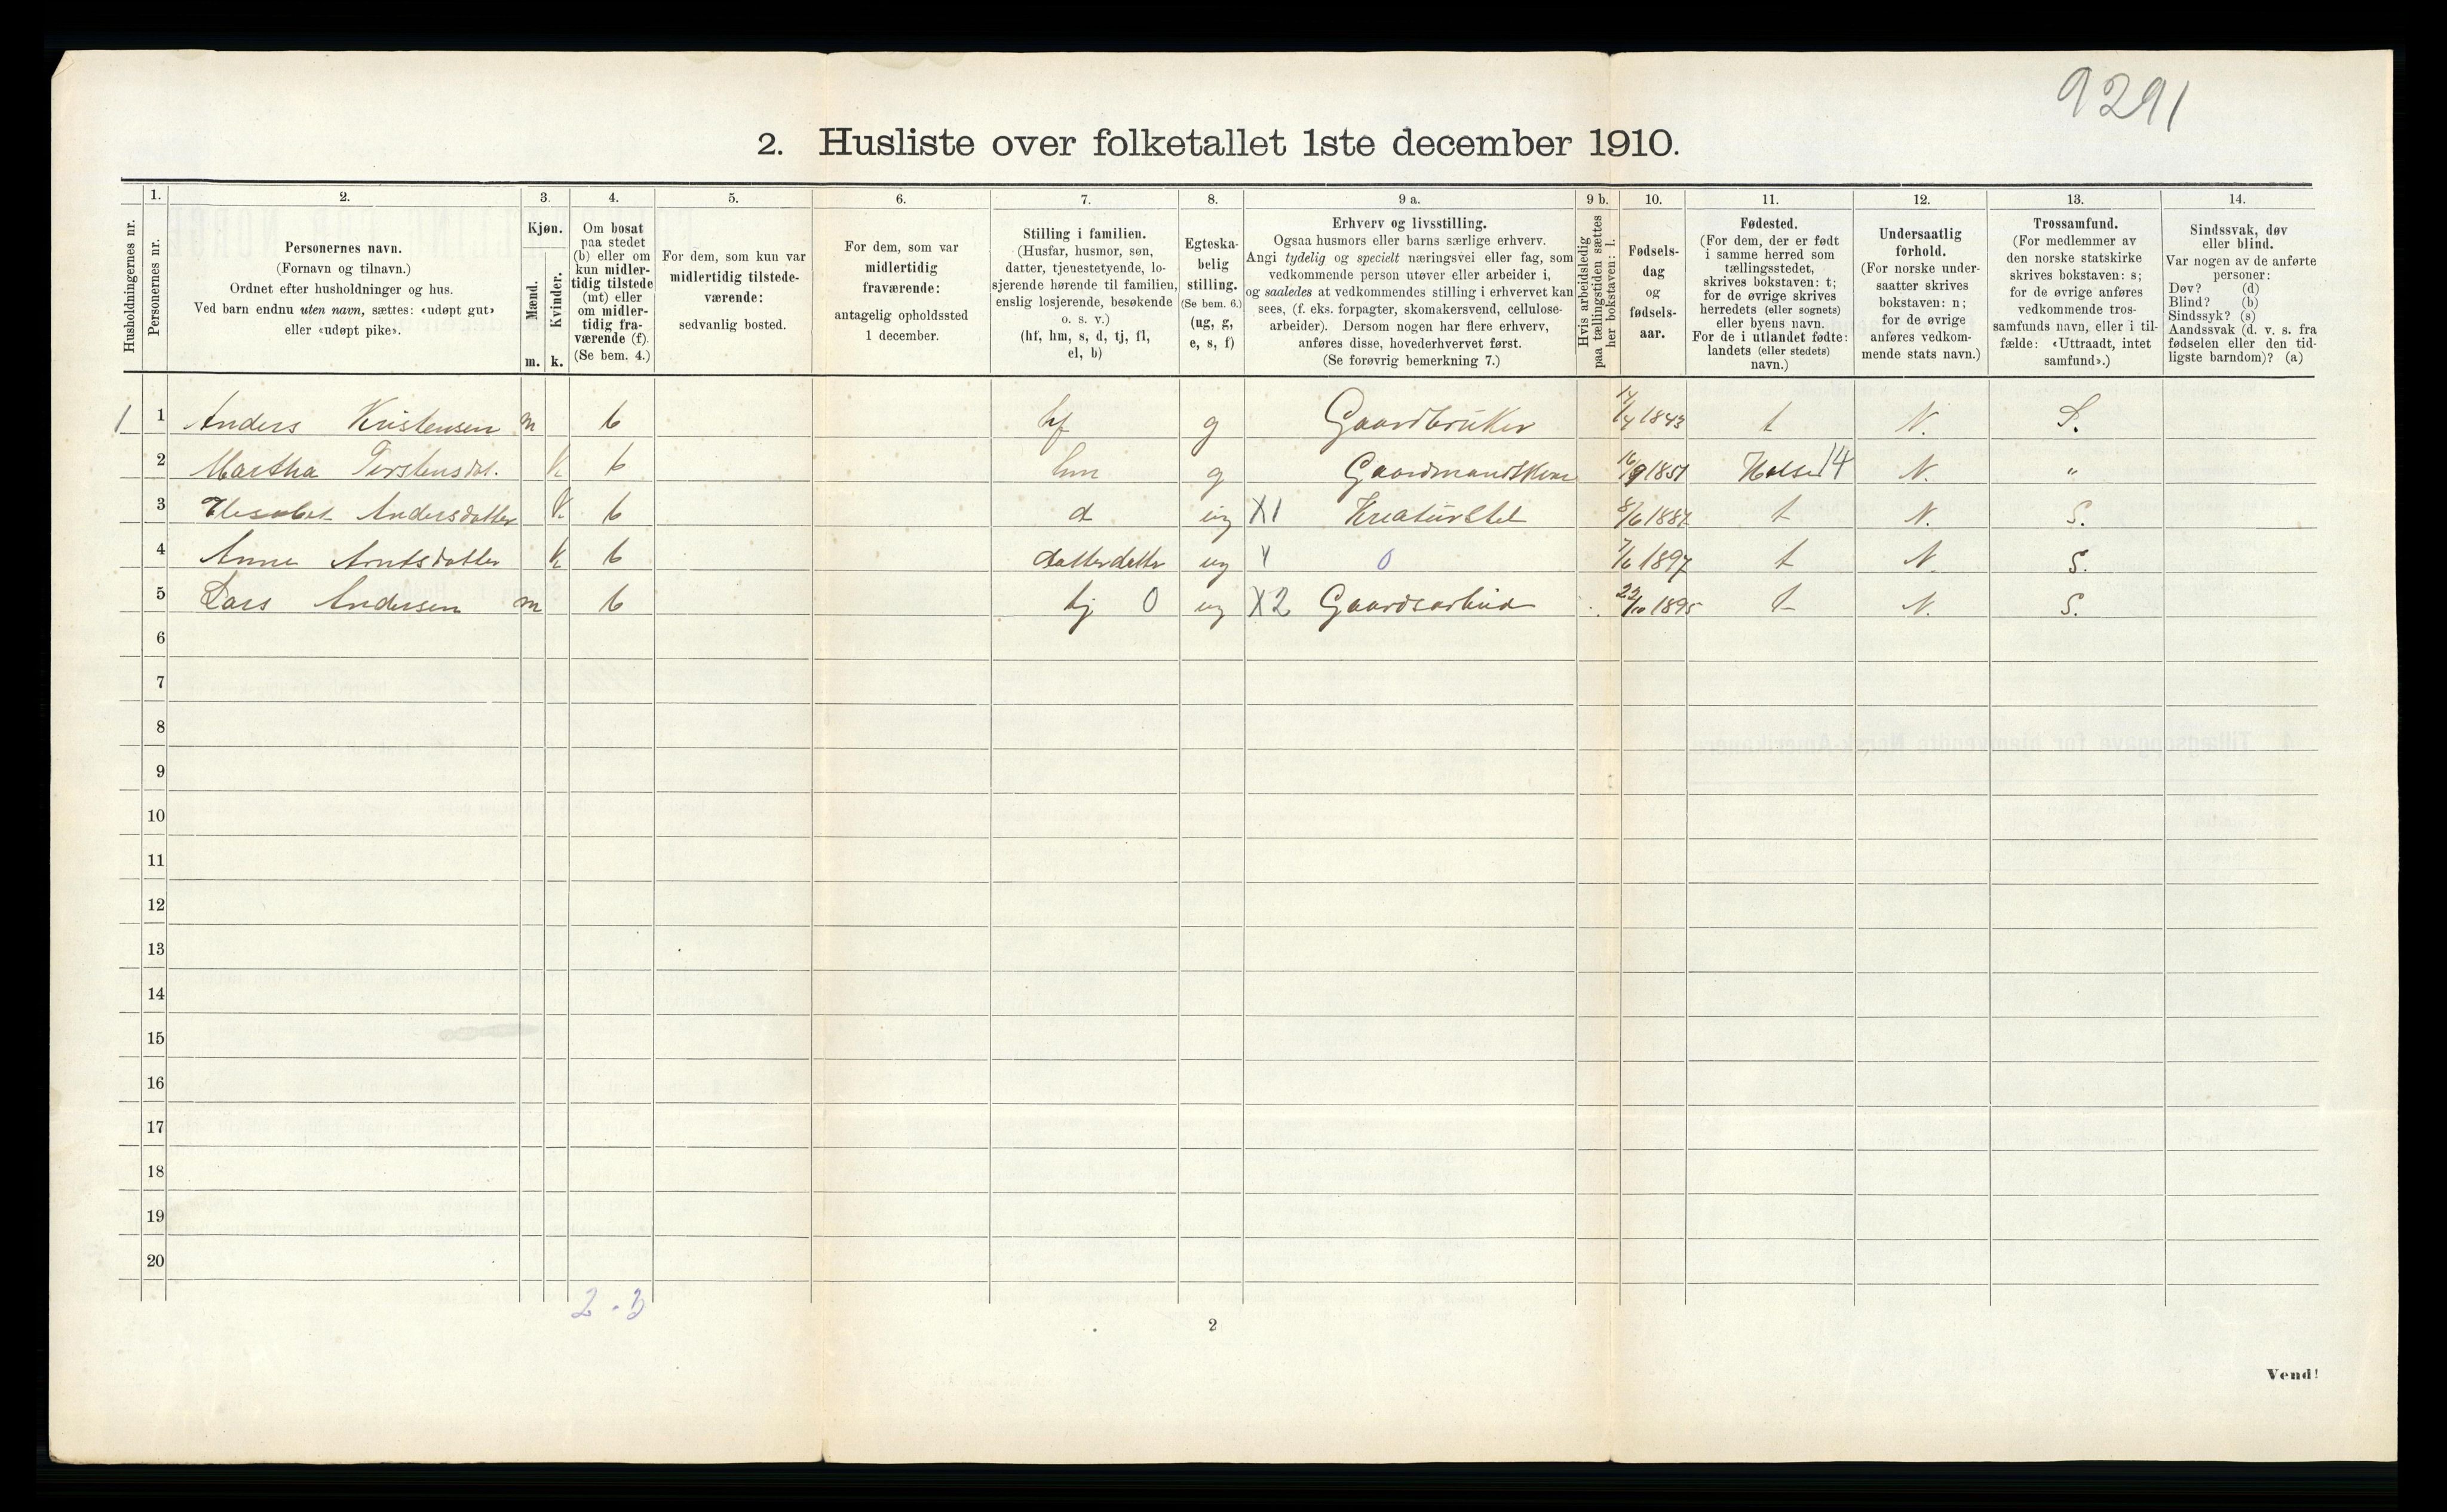 9291
2. Husliste over folketallet 1ste december 1910.
Husholdningernes nr.
1.
Personernes nr.
2.
Personernes navn.
(Fornavn og tilnavn.)
Ordnet efter husholdninger og hus.
Ved barn endnu uten navn, sættes: «udøpt gut»
eller «udøpt pike».
3.
Kjøn.
Mænd.
Kvinder.
m. k.
4.
Om bosat
paa stedet
(b) eller om
kun midler-
tidig tilstede
(mt) eller
om midler-
tidig fra-
værende (f).
(Se bem. 4.)
5.
For dem, som kun var
midlertidig tilstede-
værende:
sedvanlig bosted.
6.
For dem, som var
midlertidig
fraværende:
antagelig opholdssted
1 december.
7.
Stilling i familien.
(Husfar, husmor, søn,
datter, tjenestetyende, lo-
sjerende hørende til familien,
enslig losjerende, besøkende
o. s. v.)
(hf, hm, s, d, tj, fl,
el, b)
8.
Egteska-
belig
stilling.
(Se bem. 6.)
(ug, g,
e, s, f)
9 a.
Erhverv og livsstilling.
Ogsaa husmors eller barns særlige erhverv.
Angi tydelig og specielt næringsvei eller fag, som
vedkommende person utøver eller arbeider i,
og saaledes at vedkommendes stilling i erhvervet kan
sees, (f. eks. forpagter, skomakersvend, cellulose-
arbeider). Dersom nogen har flere erhverv,
anføres disse, hovederhvervet først.
(Se forøvrig bemerkning 7.)
9 b.
Hvis arbeidsledig
paa tællingstiden sættes
her bokstaven: l.
10.
Fødsels-
dag
og
fødsels-
aar.
11.
Fødested.
(For dem, der er født
i samme herred som
tællingsstedet,
skrives bokstaven: t;
for de øvrige skrives
herredets (eller sognets)
eller byens navn.
For de i utlandet fødte:
landets (eller stedets)
navn.)
12.
Undersaatlig
forhold.
(For norske under-
saatter skrives
bokstaven: n;
for de øvrige
anføres vedkom-
mende stats navn.)
13.
Trossamfund.
(For medlemmer av
den norske statskirke
skrives bokstaven: s;
for de øvrige anføres
vedkommende tros-
samfunds navn, eller i til-
fælde: «Uttraadt, intet
samfund».)
14.
Sindssvak, døv
eller blind.
Var nogen av de anførte
personer:
Døv? (d)
Blind? (b)
Sindssyk? (s)
Aandssvak (d. v. s. fra
fødselen eller den tid-
ligste barndom)? (a)
1 1 Anders Kristensen m b hf g Gaardbruker 14/4 1843 t N. S.
2 Martha Torstensdat. k b hm g Gaardmandskone 1851 Halse 14 N. "
3 Elesabet Andersdatter k b d ug X1 Kreaturstel 8/6 1887 t N. S.
4 Anne Arntsdatter k b datterdatter ug 0 7/6 1897 t N. S.
5 Lars Andersen m b tj 0 ug X2 Gaardsarbeid 22/10 1895 t N. S.
6
7
8
9
10
11
12
13
14
15
16
17
18
19
20
2 - 3
2
Vend!